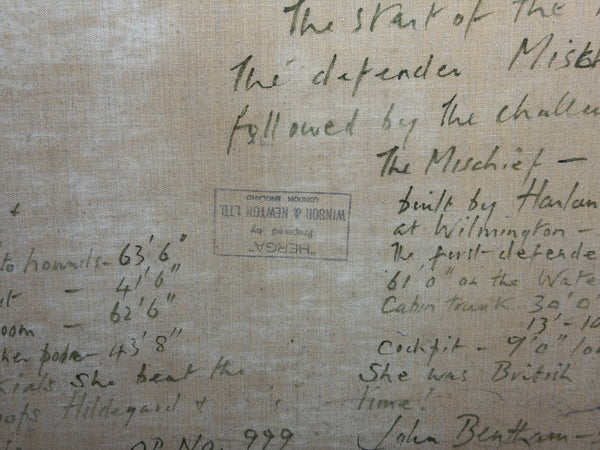 The start of the
The defender Misch
followed by the challe
The Mischief -
built by Harlan
at Wilmington -
The first defende
61'0" on the Wate
Cabin trunk 30'0"
13'-10
Cockpit - 9'0" lon
She was British
time!
John Bentham-S
"HERGA"
Prepared by
WINSOR & NEWTON LTD.
LONDON ENGLAND
to hounds - 63'6"
- 41'6"
oom - 62'6"
- 43'8"
rials She beat the
oops Hildegard &
OP. NO. 999